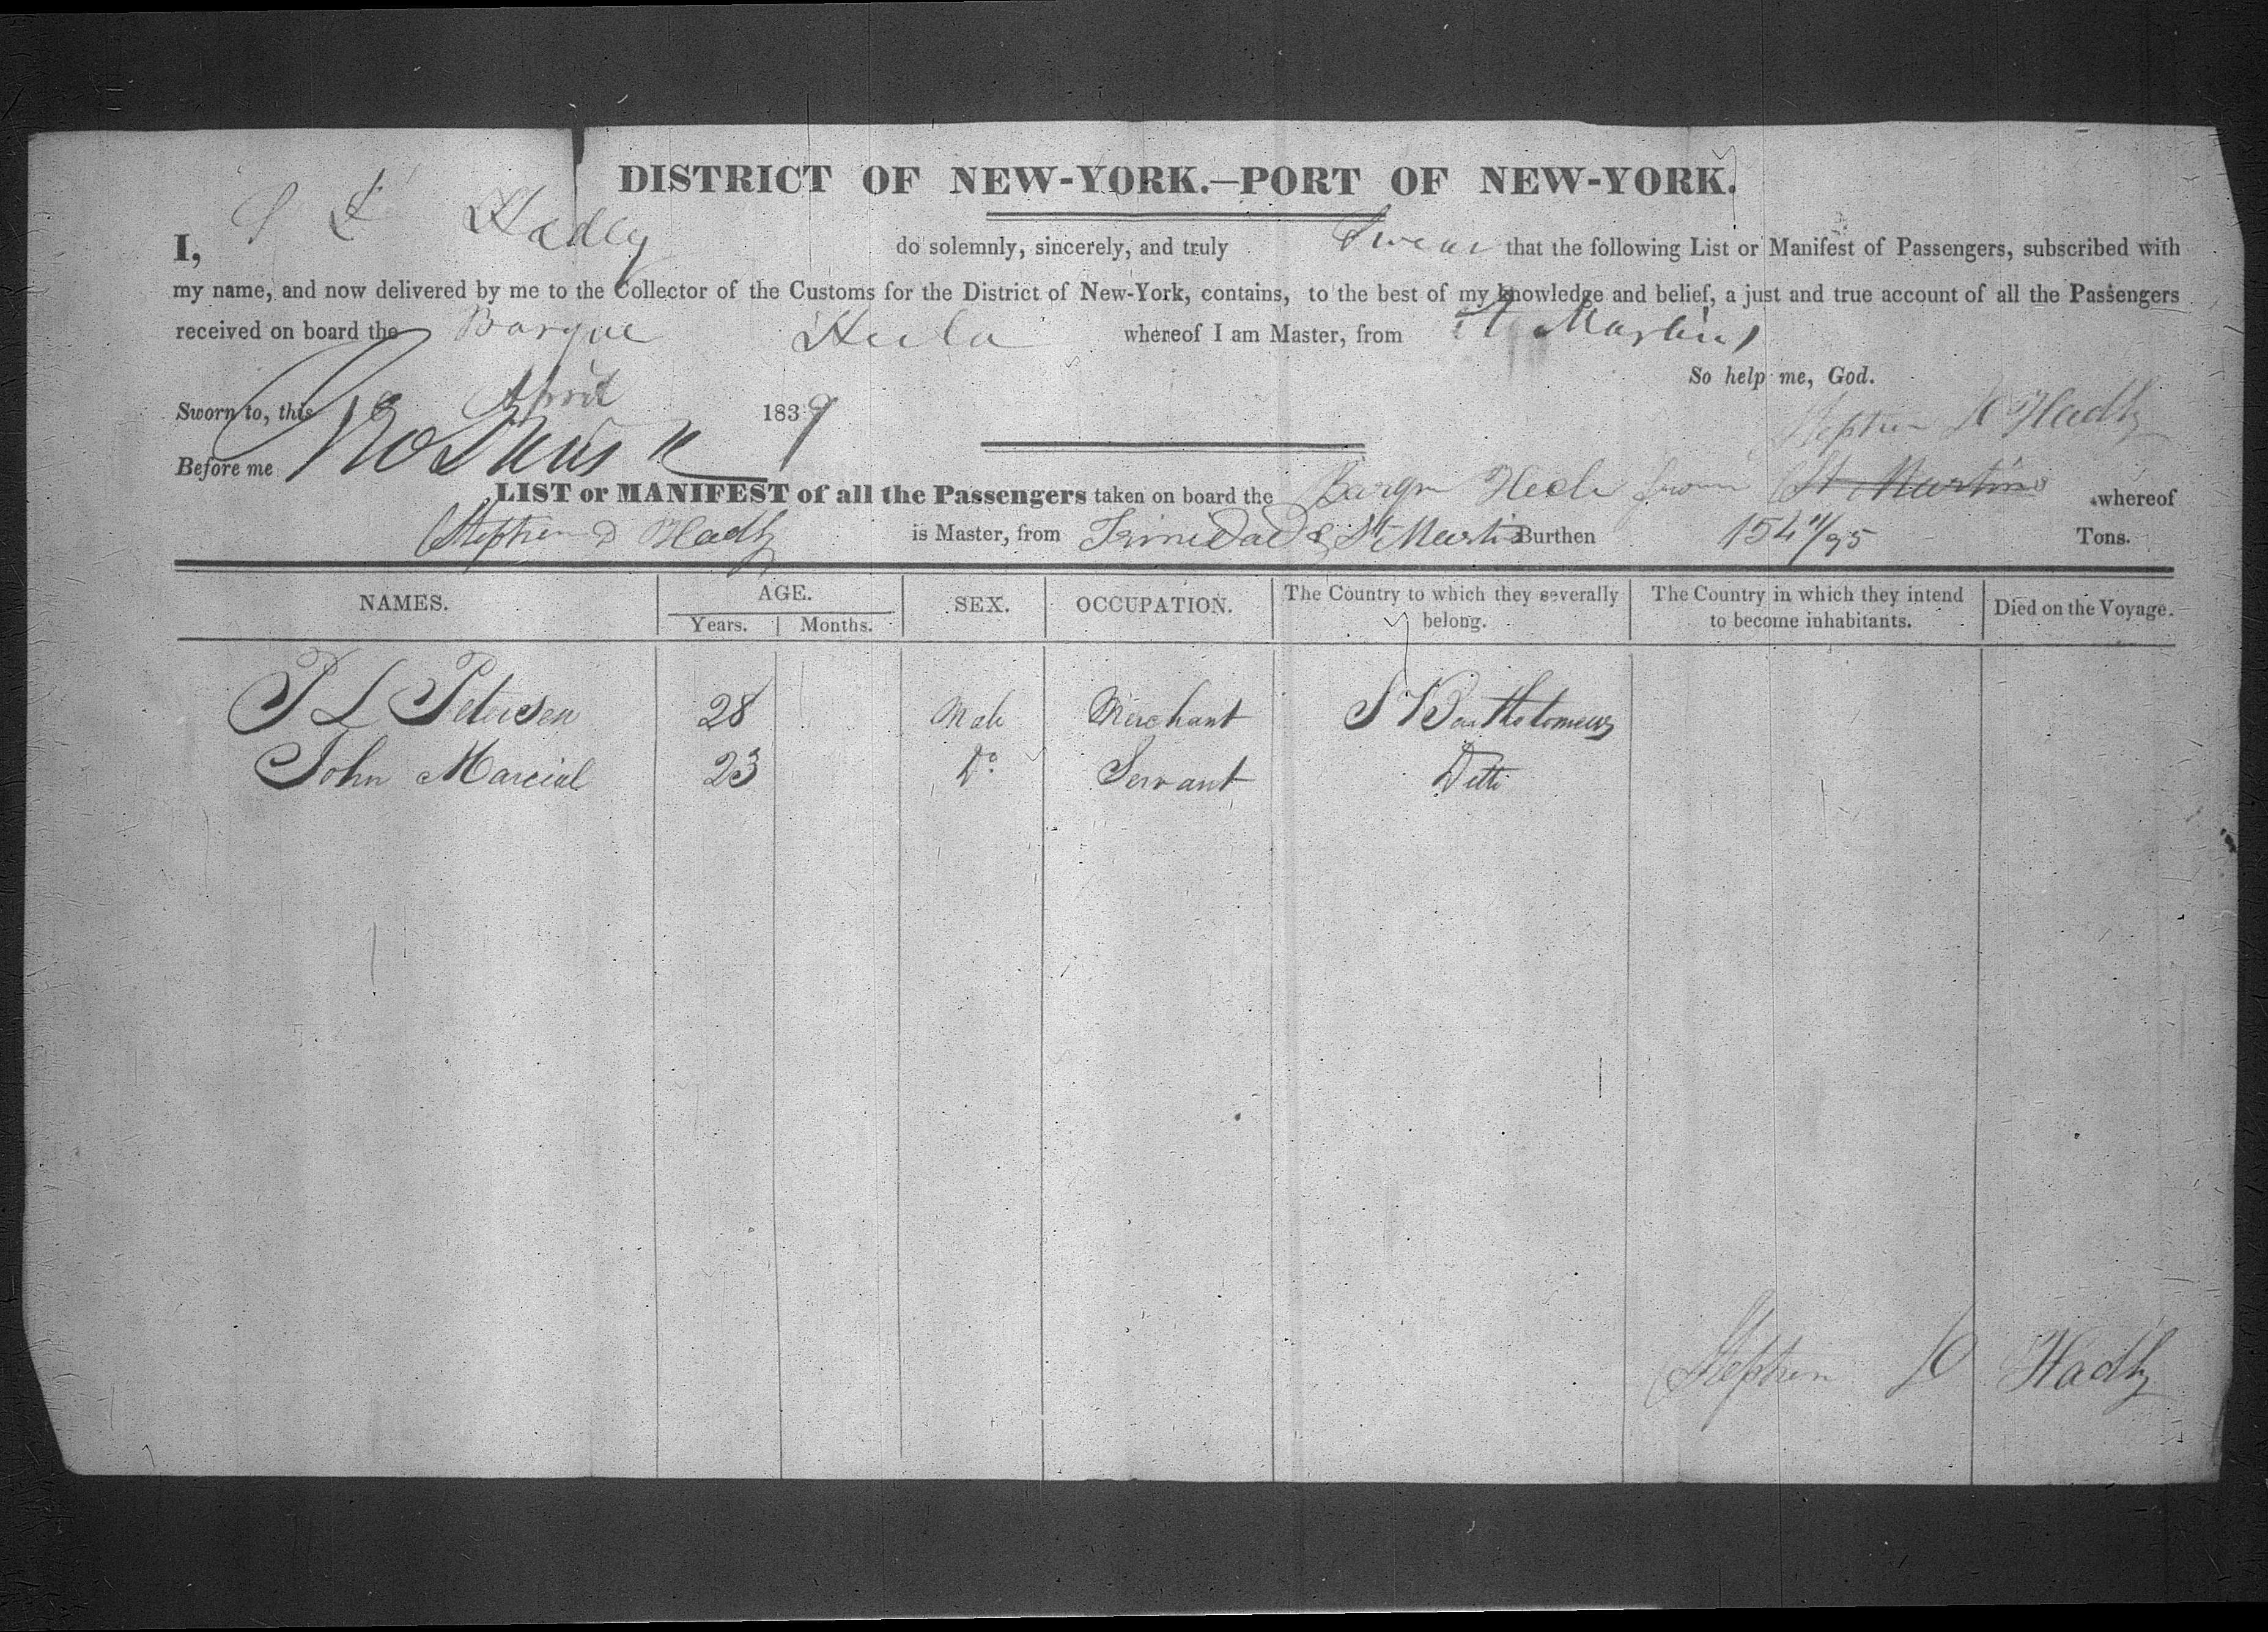 DISTRICT OF NEW-YORK.—PORT OF NEW-YORK.
I, S Hadley do solemnly, sincerely, and truly Swear that the following List or Manifest of Passengers, subscribed with
my name, and now delivered by me to the Collector of the Customs for the District of New-York, contains, to the best of my knowledge and belief, a just and true account of all the Passengers
received on board the Barque whereof I am Master, from St Martins
So help me, God.
Sworn to, this 18 April 1839
Stephen D Hadly
Before me
LIST or MANIFEST of all the Passengers taken on board the Barqn from St Martins whereof
Stephen D Hadly is Master, from Trinidad & St Martins Burthen 154 11/95 Tons.
NAMES. AGE. SEX. OCCUPATION. The Country to which they severally belong. The Country in which they intend to become inhabitants. Died on the Voyage.
Years. Months.
P L Petersen 28 Male Merchant St Bartholomews
John Marcial 23 Do Servant Ditto
Stephen D Hadly